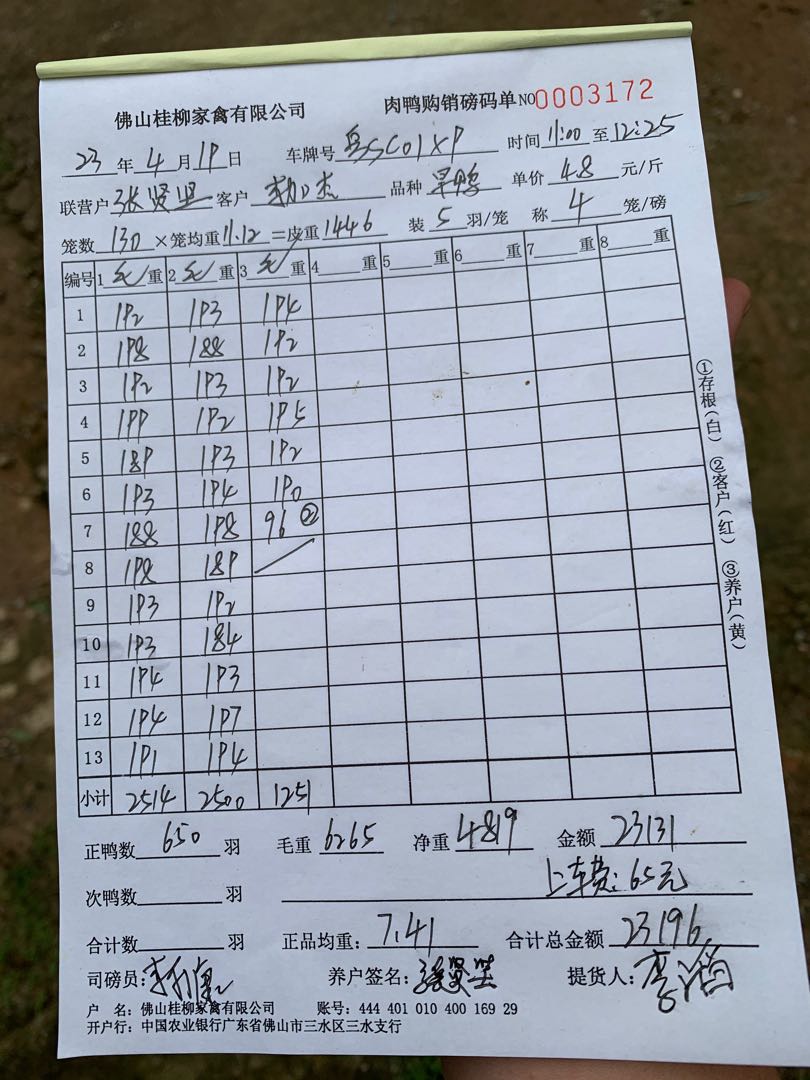 佛山桂柳家禽有限公司 肉鸭购销磅码单 NO 0003172
23 年 4 月 19 日 车牌号 粤SC01X9 时间 11:00 至 12:25
联营户 张贤坚 客户 品种 旱鸭 单价 4.8 元/斤
笼数 130 ×笼均重 11.12 =皮重 1446 装 5 羽/笼 称 4 笼/磅
编号 1 毛 重 2 毛 重 3 毛 重 4 重 5 重 6 重 7 重 8 重
1 192 193 194
2 198 188 192
3 192 193 192
4 199 192 195
5 189 193 192
6 193 194 190
7 188 198 96 ②
8 198 189
9 193 192
10 193 184
11 194 193
12 194 197
13 191 194
小计 2514 2500 1251
①存根(白) ②客户(红) ③养户(黄)
正鸭数 650 羽 毛重 6265 净重 4819 金额 23131
次鸭数 羽 上车费:65元
合计数 羽 正品均重: 7.41 合计总金额 23196
司磅员: 养户签名: 张贤坚 提货人:
户 名:佛山桂柳家禽有限公司 账号:444 401 010 400 169 29
开户行:中国农业银行广东省佛山市三水区三水支行